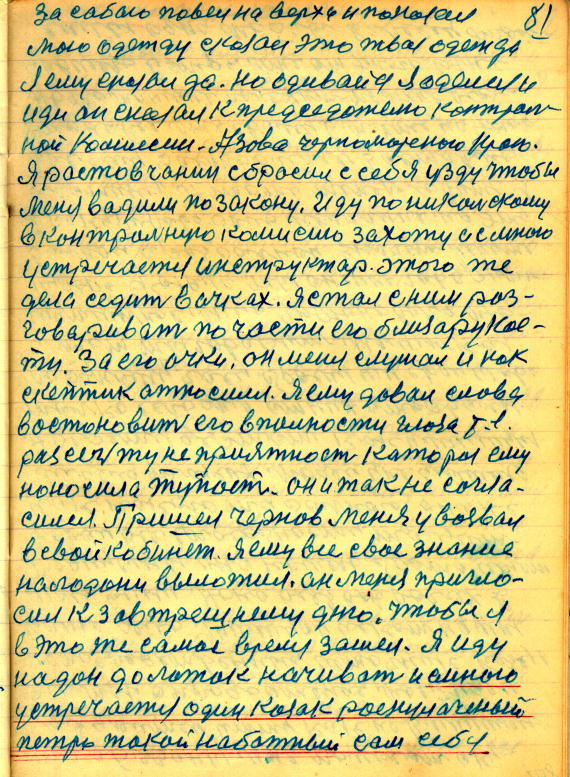 81
За сабою повел на верхъ и показал
мою одежду сказал это твая одежда
Я ему сказал да. но одивайся Я оделся и
иди он сказал к председателю контрол-
ной Комиссии. Азово черноморского краю.
Я растовчанин сбросил с себя узду чтобы
меня вадили по закону. Иду по николскому
в контролную комисию захожу и с мною
устречается инструктар. этого же
дела седит в очках. я стал с ним раз-
говариват по части его близарукос-
ти. За его очки, он меня слушал и как
скептик относился. Я ему довал слова
востоновит его вполности глаза т.е.
рассечь ту не приятност катороя ему
наносила тупост. он и так не согла-
сился. Пришел Чернов меня увозвал
в свой кобинет. Я ему все свое знание
на лодони выложил. он меня пригло-
сил к завтрешнему дню. чтобы я
в это же самое время зашел. Я иду
на дон до латок начиват и с мною
устречается один козак роскулаченый
петрь такой набожный сам себу